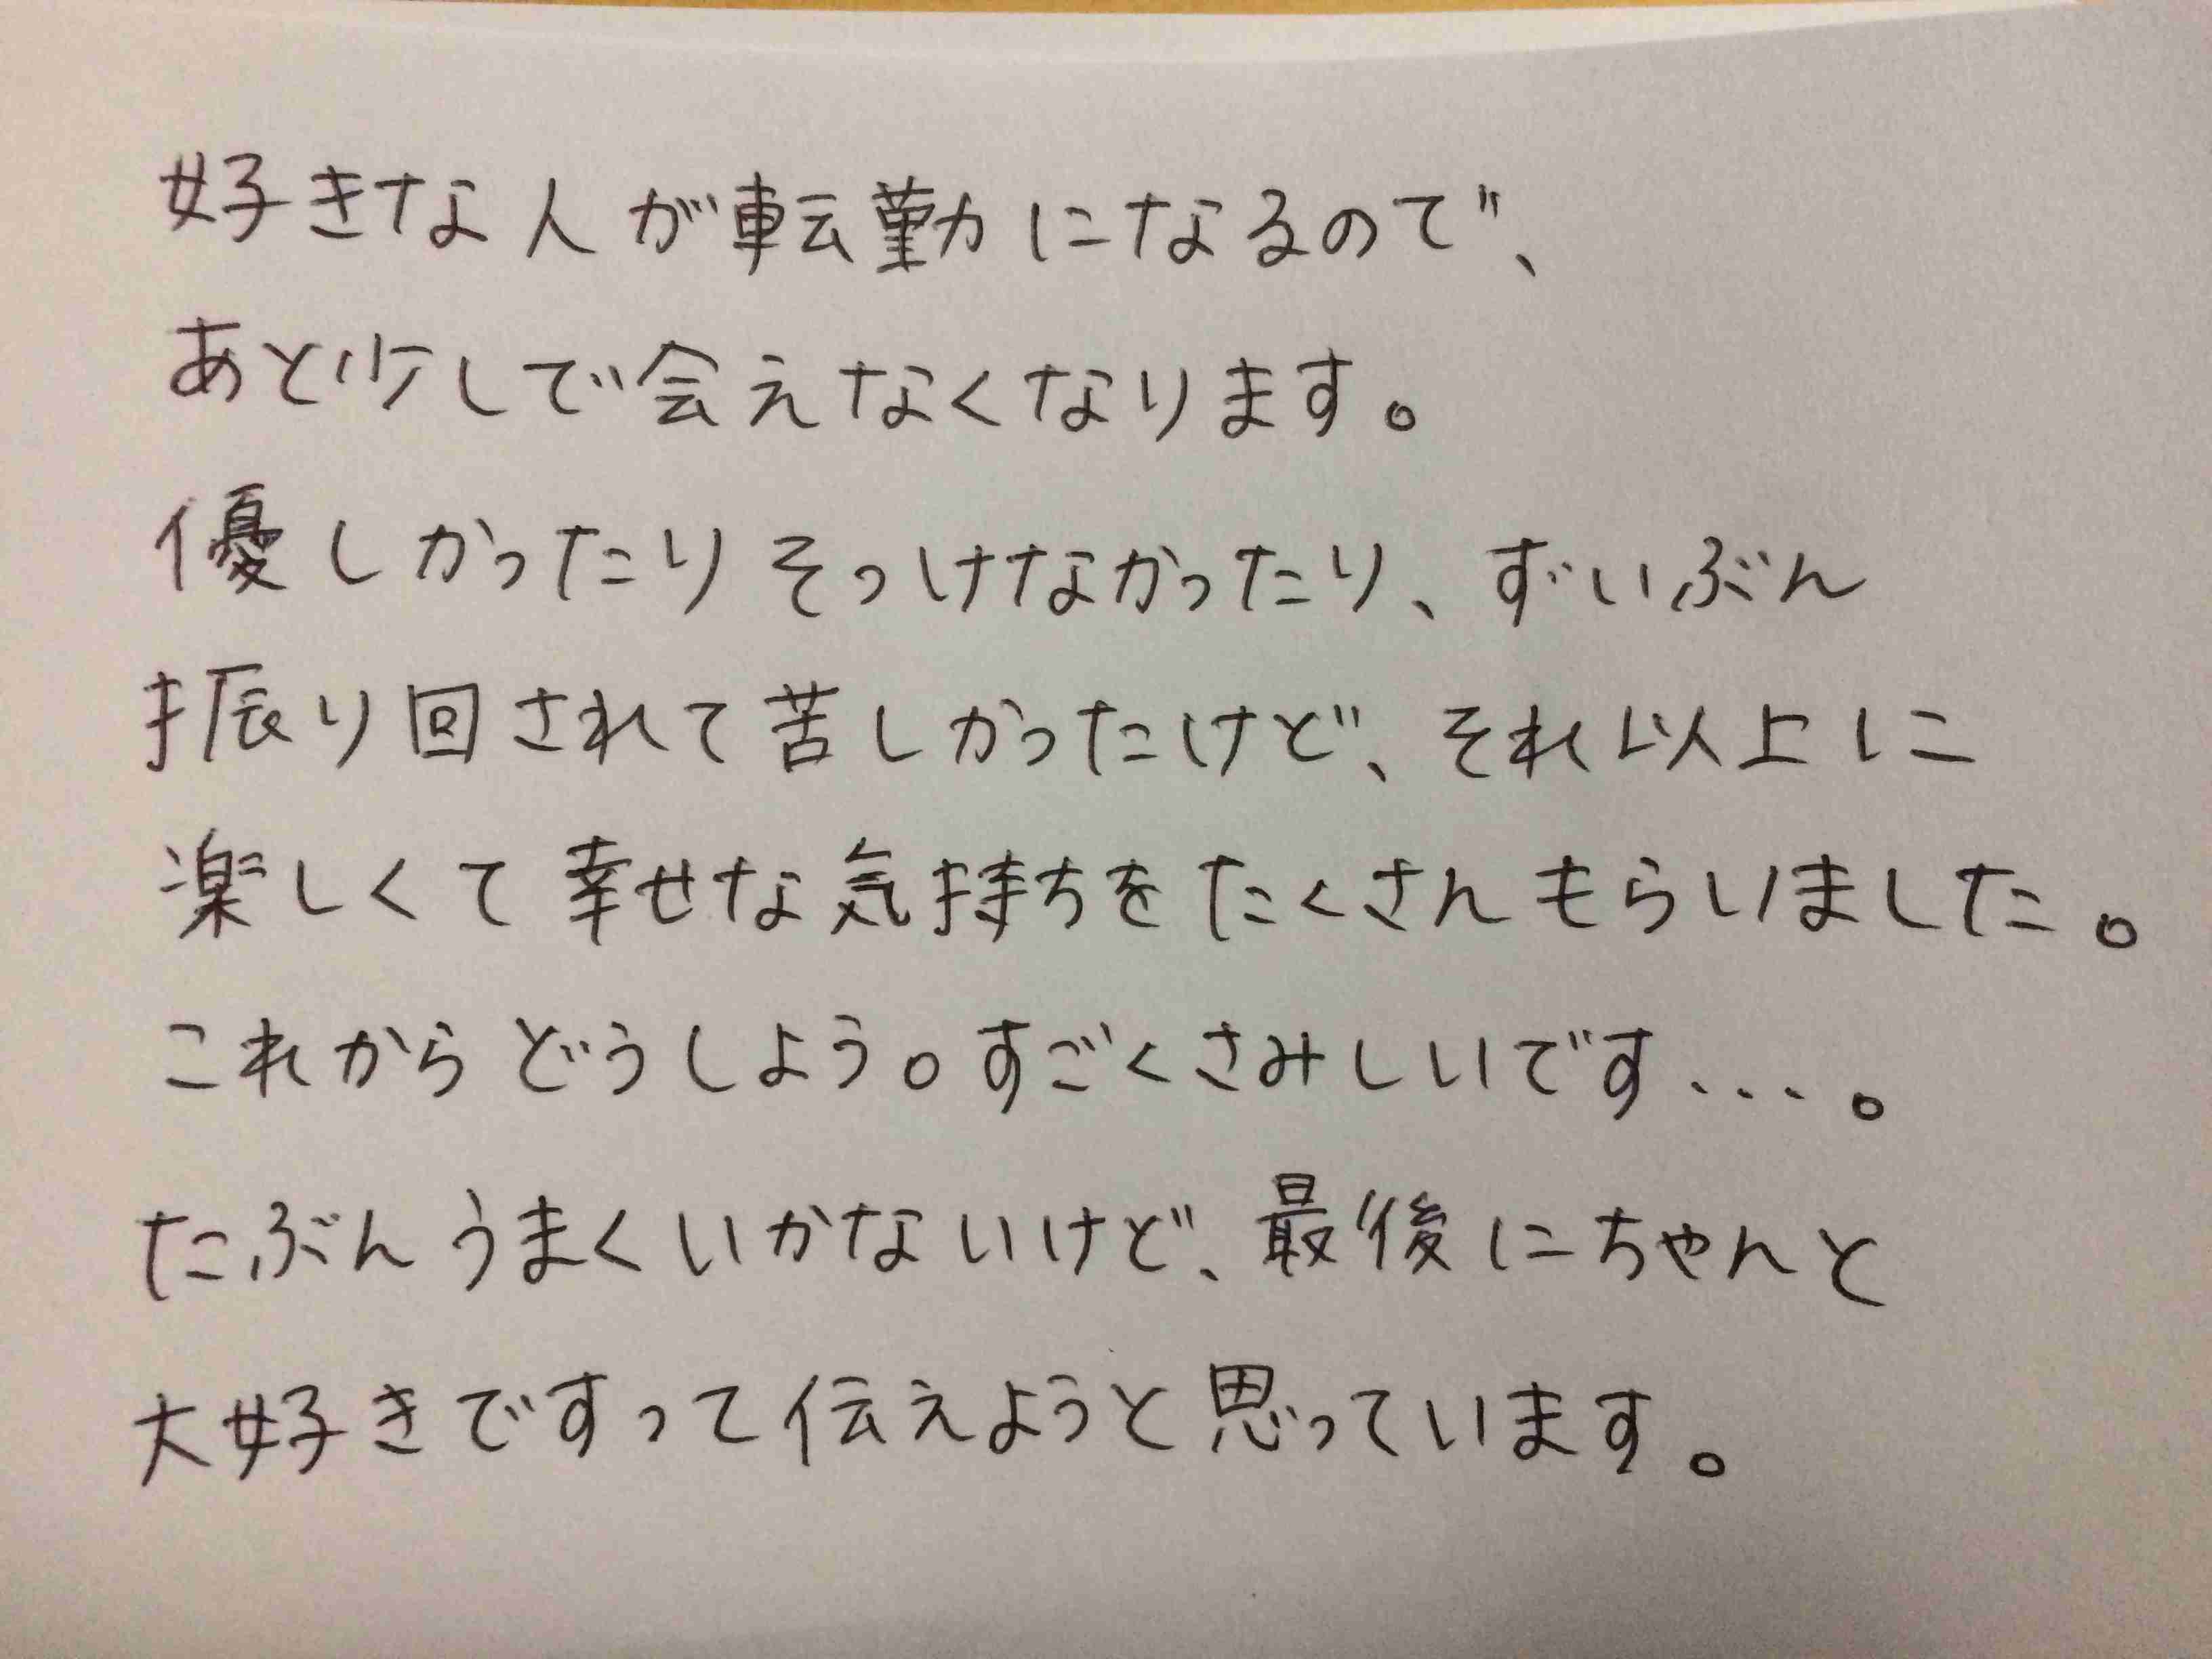 好きな人が転勤になるので、
あと少しで会えなくなります。
優しかったりそっけなかったり、ずいぶん
振り回されて苦しかったけど、それ以上に
楽しくて幸せな気持ちをたくさんもらいました。
これからどうしよう。すごくさみしいです...。
たぶんうまくいかないけど、最後にちゃんと
大好きですって伝えようと思っています。